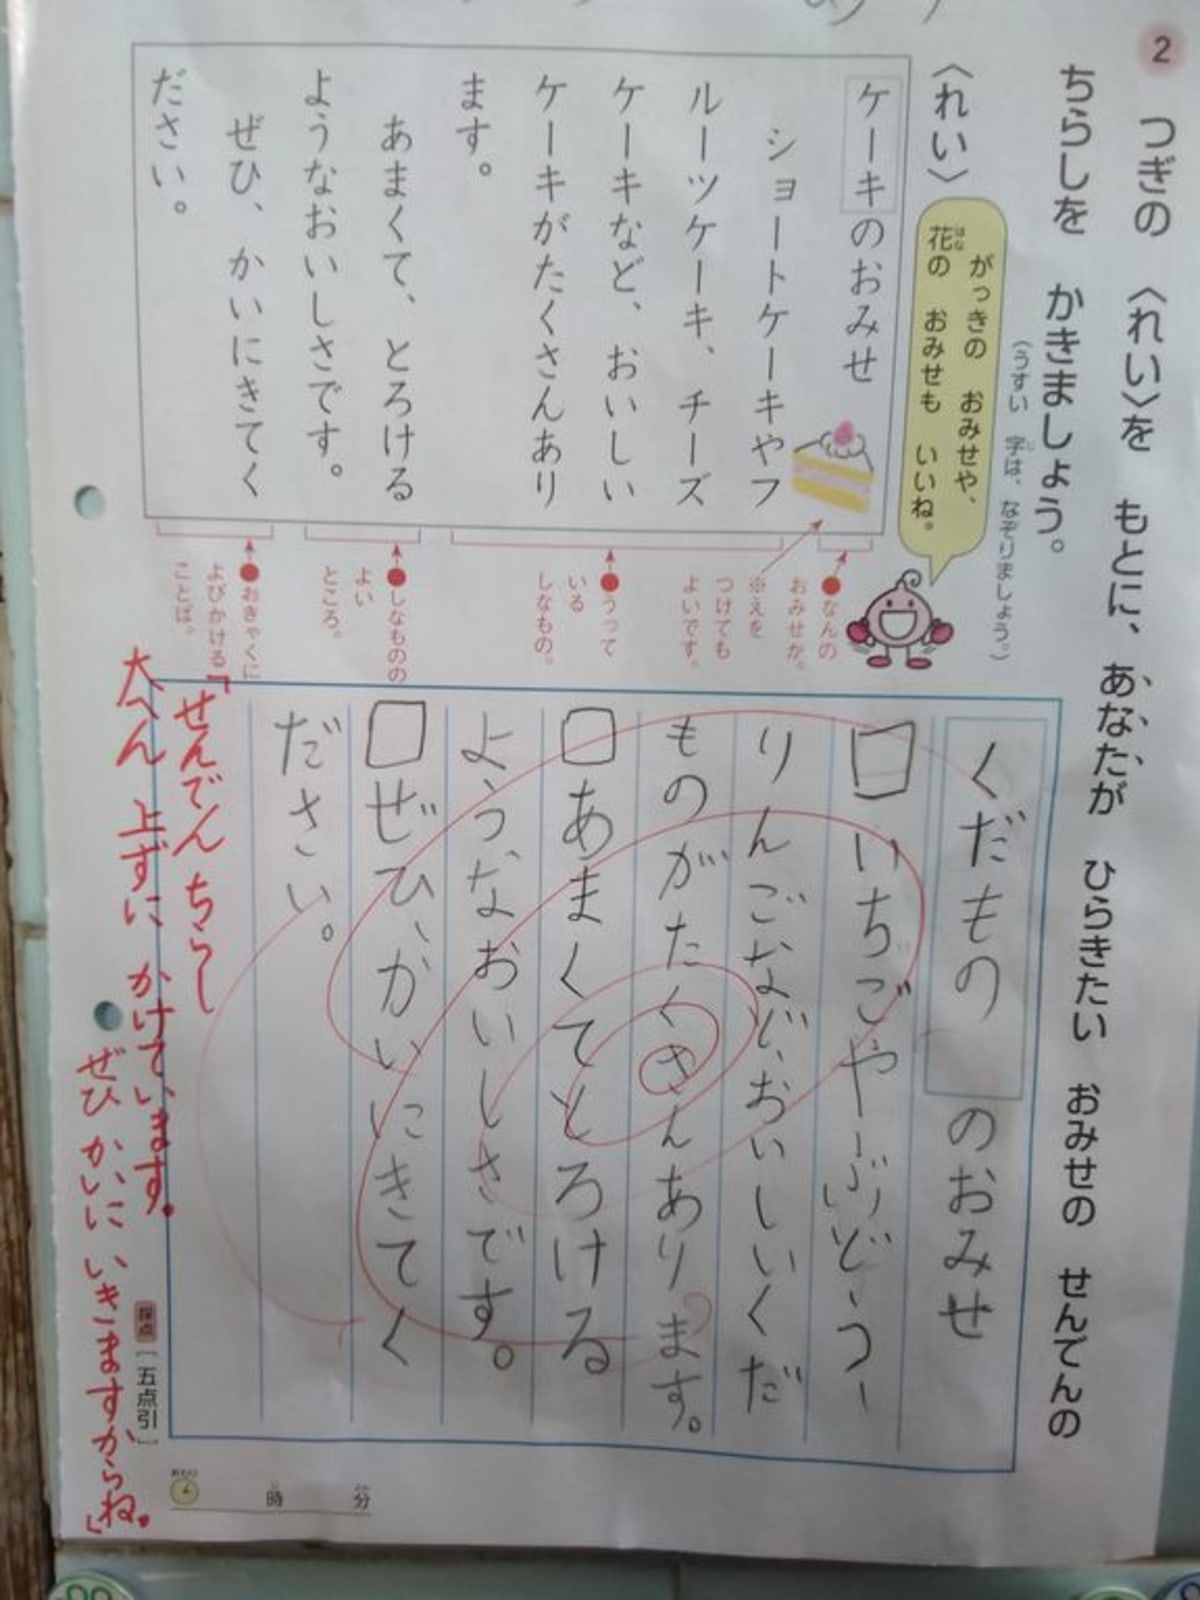 2
つぎの 〈れい〉を もとに、あなたが ひらきたい おみせの せんでんの
ちらしを かきましょう。
（うすい 字は、なぞりましょう。）
じ
〈れい〉
がっきの おみせや、
花の おみせも いいね。
はな
ケーキのおみせ
ショートケーキやフ
ルーツケーキ、チーズ
ケーキなど、おいしい
ケーキがたくさんあり
ます。
あまくて、とろける
ようなおいしさです。
ぜひ、かいにきてく
ださい。
●なんの
おみせか。
※えを
つけても
よいです。
●うって
いる
しなもの。
●しなものの
よい
ところ。
●おきゃくに
よびかける
ことば。
くだもの のおみせ
□いちごやぶどう
りんごなど、おいしいくだ
ものがたくさんあります。
□あまくてとろける
ようなおいしさです。
□ぜひ、かいにきてく
ださい。
「せんでん ちらし
大へん 上ずに かけています。
ぜひ かいに いきますからね。」
採点
［五点引］
時 分